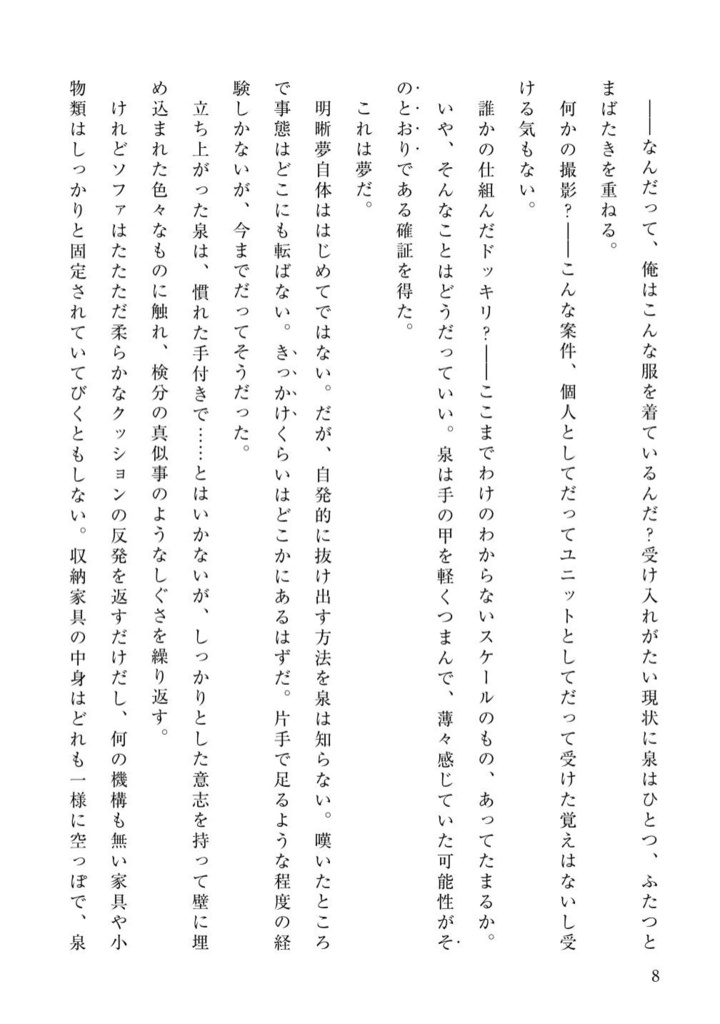 ――なんだって、俺はこんな服を着ているんだ？受け入れがたい現状に泉はひとつ、ふたつと
まばたきを重ねる。
何かの撮影？――こんな案件、個人としてだってユニットとしてだって受けた覚えはないし受
ける気もない。
誰かの仕組んだドッキリ？――ここまでわけのわからないスケールのもの、あってたまるか。
いや、そんなことはどうだっていい。泉は手の甲を軽くつまんで、薄々感じていた可能性がそ
のとおりである確証を得た。
これは夢だ。
明晰夢自体ははじめてではない。だが、自発的に抜け出す方法を泉は知らない。嘆いたところ
で事態はどこにも転ばない。きっかけくらいはどこかにあるはずだ。片手で足るような程度の経
験しかないが、今までだってそうだった。
立ち上がった泉は、慣れた手付きで……とはいかないが、しっかりとした意志を持って壁に埋
め込まれた色々なものに触れ、検分の真似事のようなしぐさを繰り返す。
けれどソファはたたただ柔らかなクッションの反発を返すだけだし、何の機構も無い家具や小
物類はしっかりと固定されていてびくともしない。収納家具の中身はどれも一様に空っぽで、泉
8